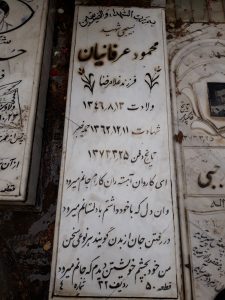 بسیجی شهید
محمود عرفانیان
فرزند غلامرضا
ولادت ۱۳۴۹٫۸٫۱۳
شهادت ۱۳۶۲٫۱۲٫۱۱
تاریخ دفن ۱۳۷۳٫۳٫۲۵
ای کاروان آهسته ران کارام جانم میرود
وان دل که با خود داشتم با دلستانم میرود
در رفتن جان از بدن گویند هر نوعی سخن
من خود بچشم خویشتن دیدم که جانم میرود
قطعه ۵۰ ردیف ۳۲ شماره ۴